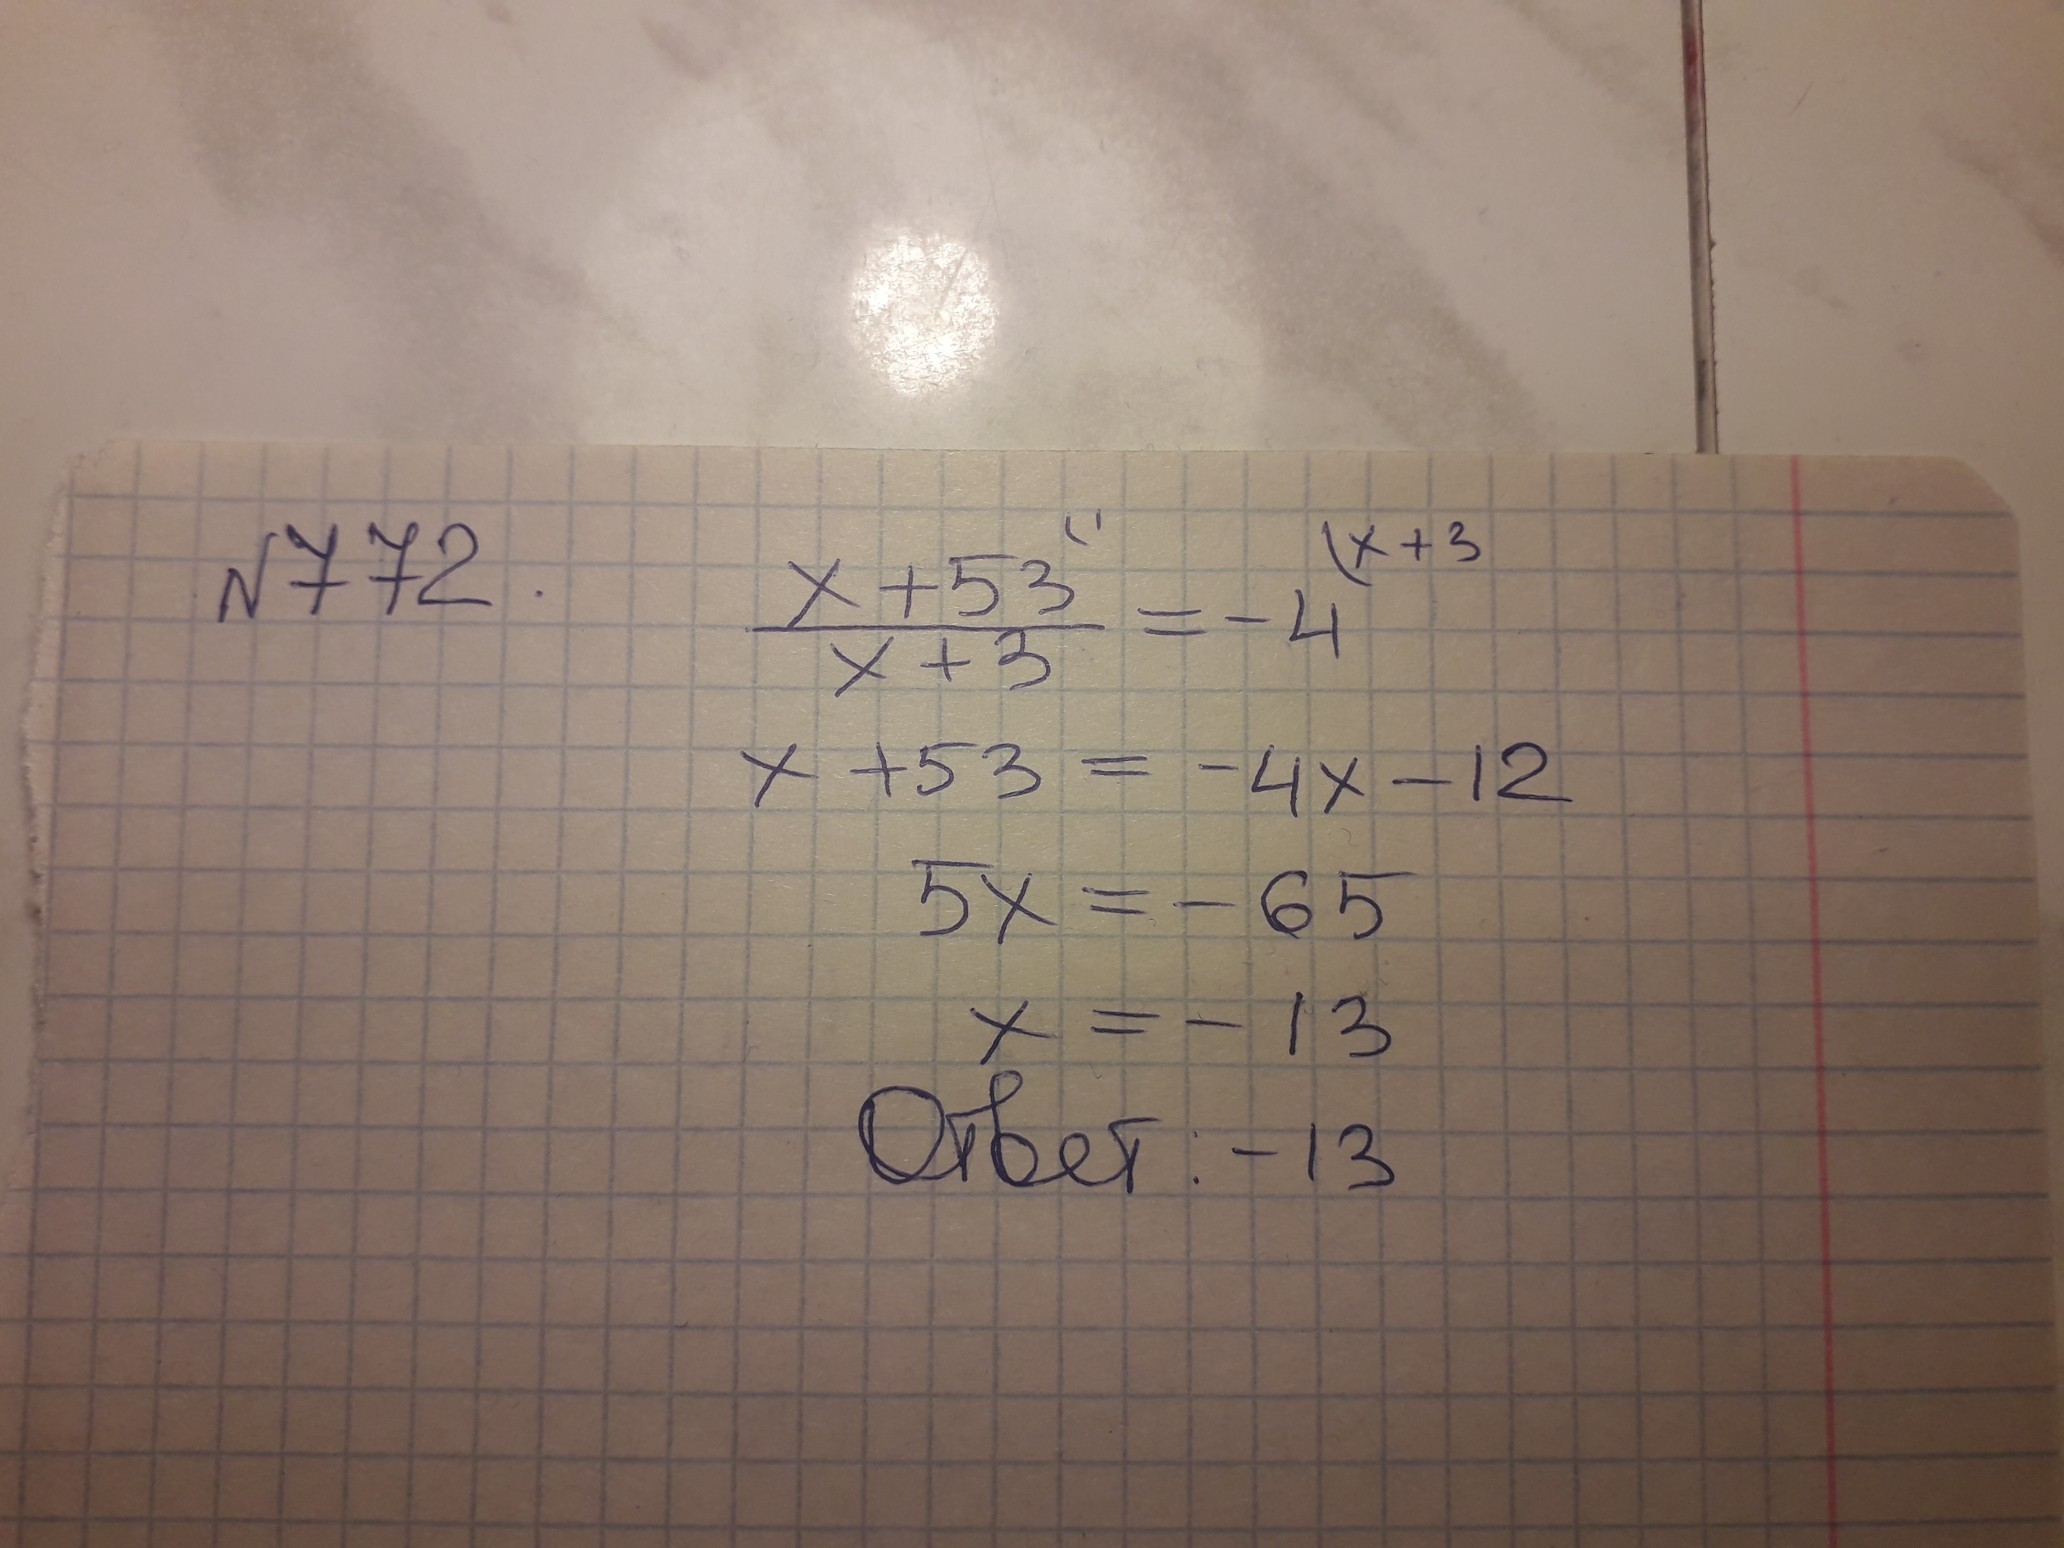 №772. x+53\1 / x+3 = -4\x+3
x+53 = -4x-12
5x = -65
x = -13
Ответ: -13